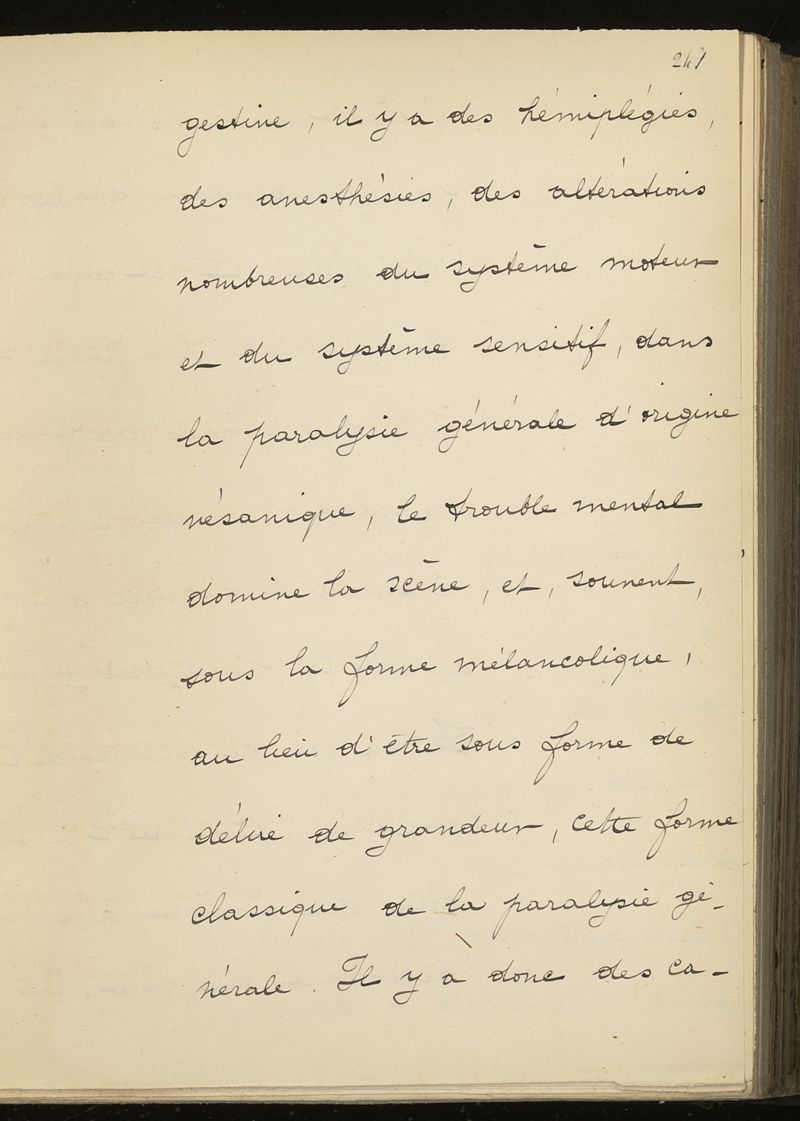 247
gestive, il y a des hémiplégies,
des anesthésies, des altérations
nombreuses du système moteur
et du système sensitif, dans
la paralysie générale d'origine
vésanique, le trouble mental
domine la scène, et, souvent,
sous la forme mélancolique,
au lieu d'être sous forme de
délire de grandeur, cette forme
classique de la paralysie gé-
nérale. Il y a donc des ca-